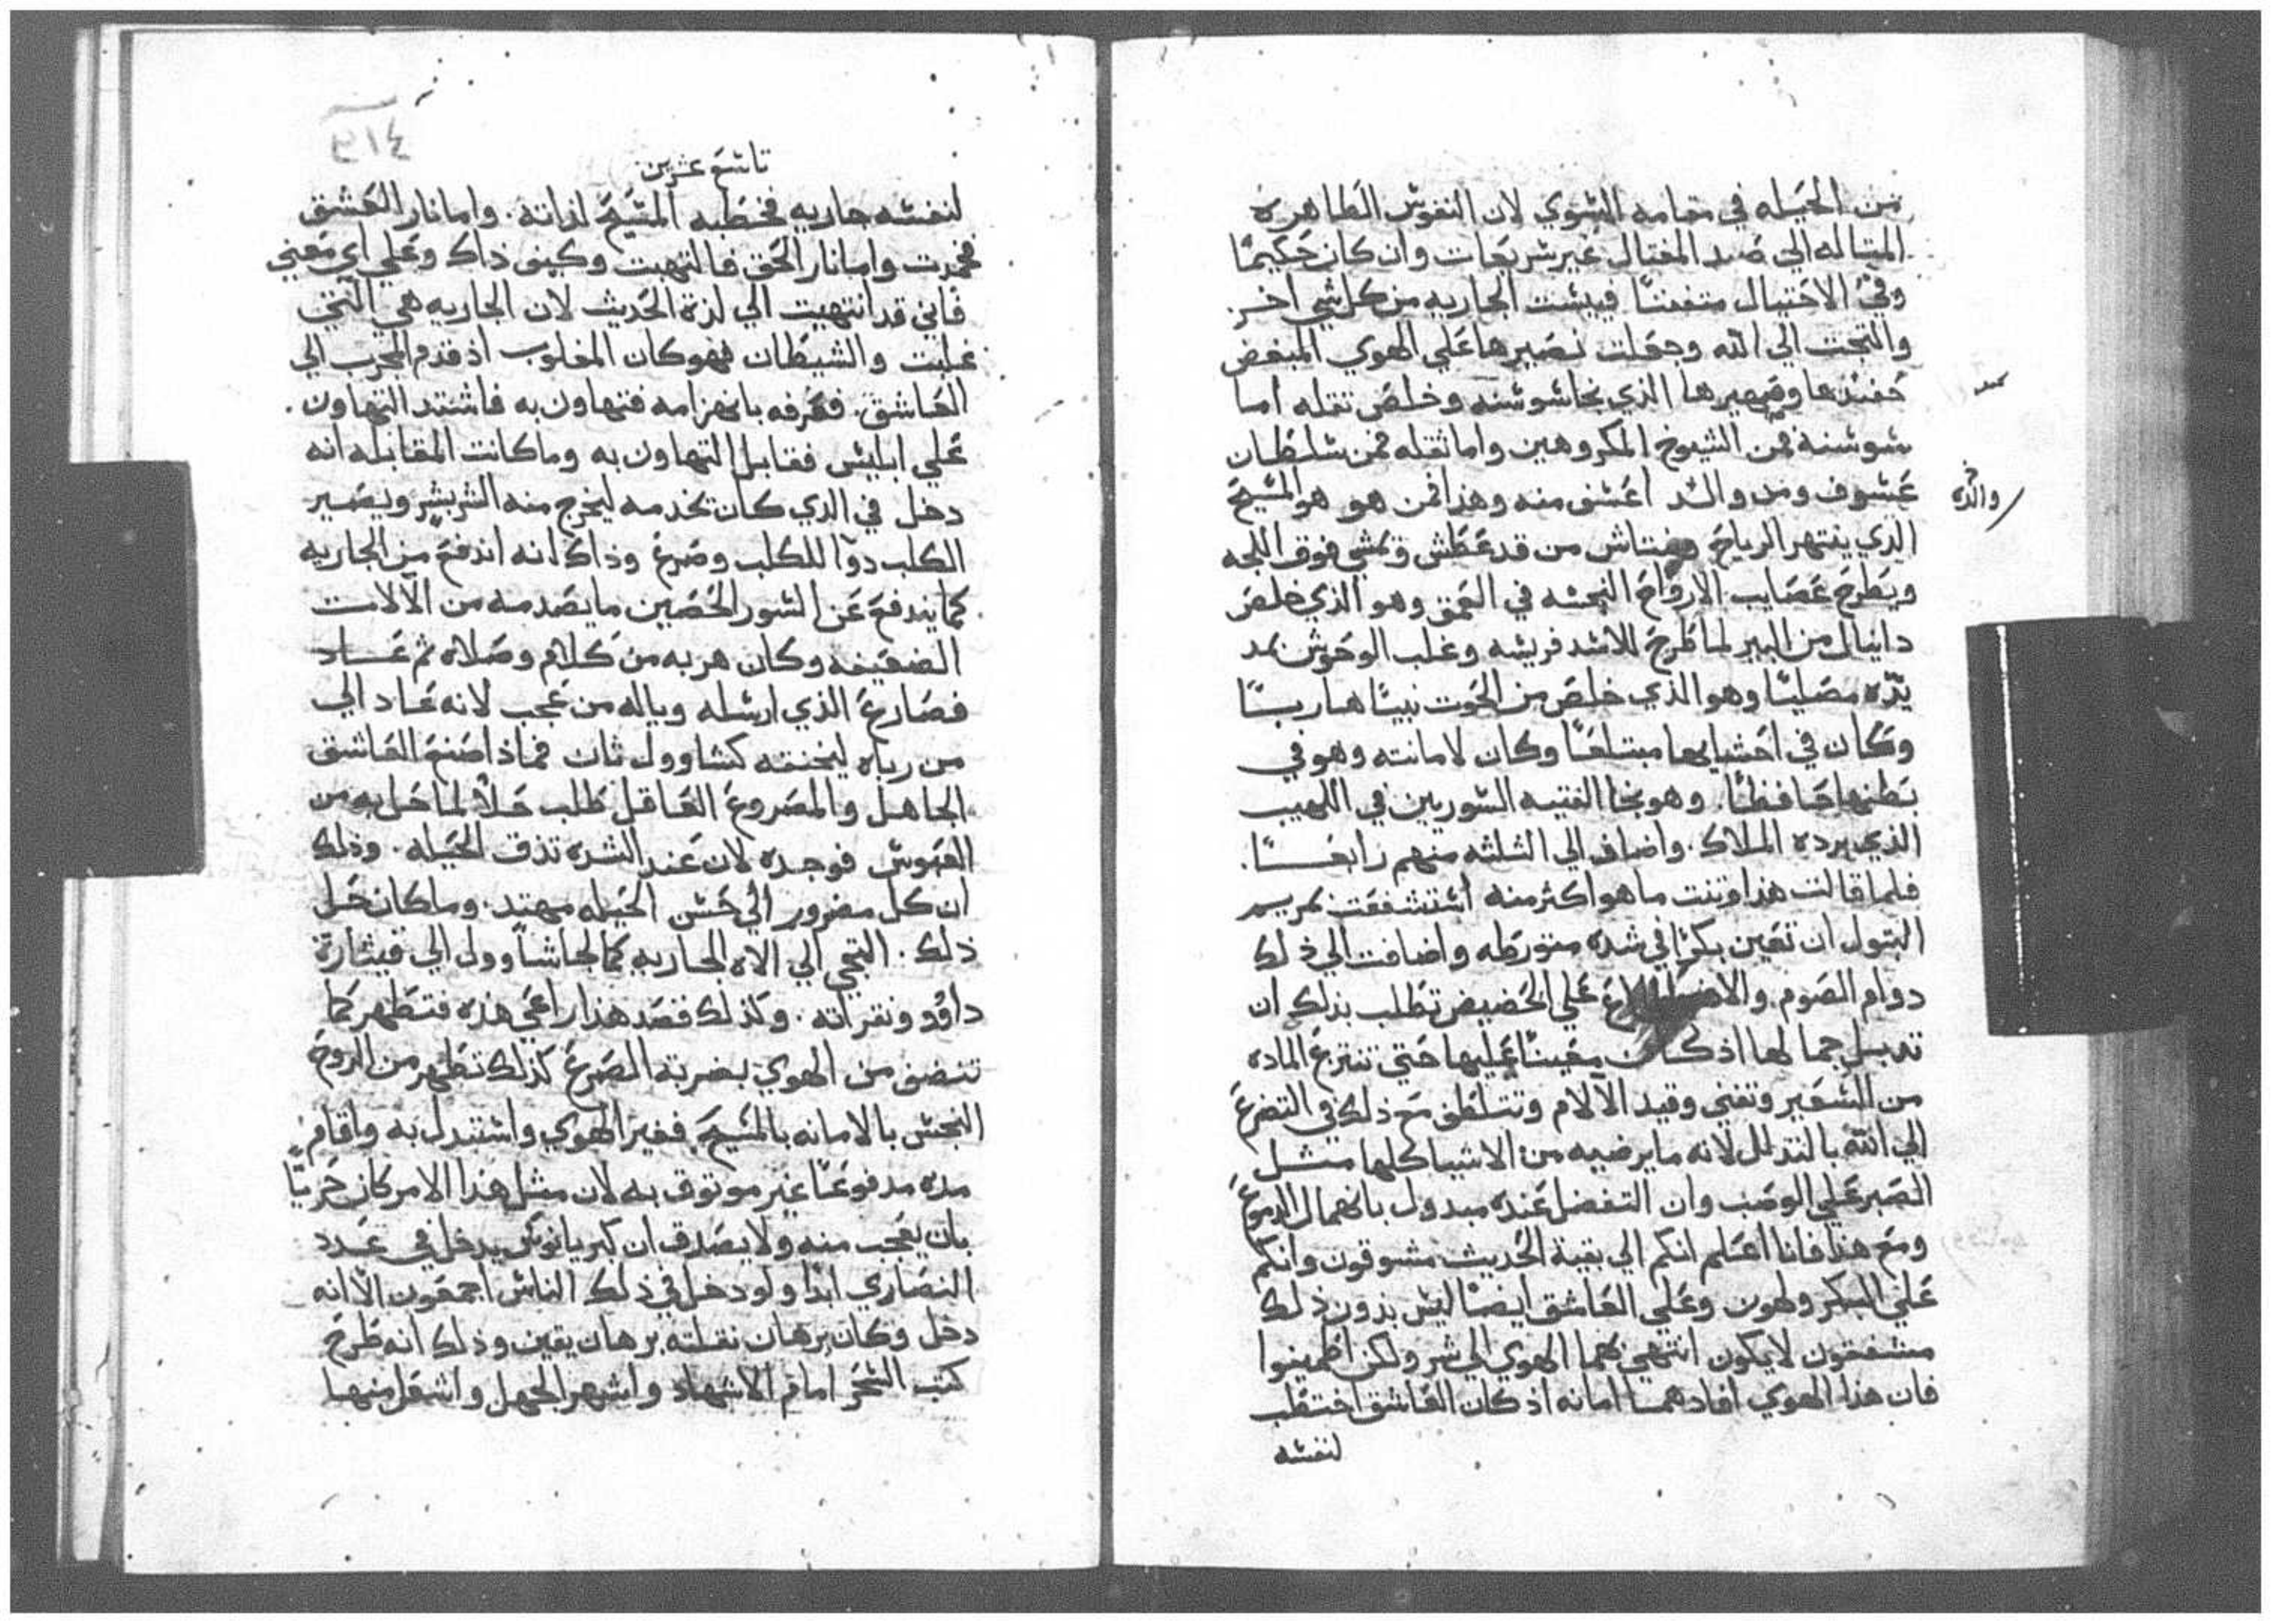 من الحيله في مقامه السوي لان النفوس الطاهره
المتالهه الي صد المغتال غير سريعات وان كان حكيمًا
وفي الاحتيال متفننًا فيئست الجاريه من كل شي اخر
والتجت الي الله وجعلت نصيرها علي الهوي المبغض
ختنها وصهيرها الذي نجا شوشنه وخلص تقله اما
شوشنه فمن الشيوخ المكروهين واما تقله فمن سلطان
عسوف ومن والده اعسف منه وهذا فمن هو هو المسيح
والده
الذي ينتهر الرياح وينتاش من قد غطس ويمشي فوق اللجه
ويطرح عصايب الارواح النجسه في العمق وهو الذي خلص
دانيال من البير لما طرح للاسد فريسه وغلب الوحوش بمد
يده مصليًا وهو الذي خلص من الحوت نبيًا هاربًا
وكان في احشايها مبتلعًا وكان لامانته وهو في
بطنها حافظًا. وهو نجا الفتيه السوريين في اللهيب
الذي برده الملاك. واضاف الي الثلثه منهم رابعًا.
فلما قالت هذا وتنت ما هو اكثر منه استشفعت بمريم
البتول ان تعين بكرًا في شده متورطه واضافت الي ذلك
دوام الصوم. والاضطجاع علي الحضيض تطلب بذلك ان
تدبل جمالها اذ كان معينًا عليها حتي تنتزع الماده
من السعير وتفني وقيد الالام وتتلطف مع ذلك في التضرع
الي الله بالتذلل لانه ما يرضيه من الاشيا كلها مثل
الصبر علي الوصب وان التفضل عنده مبدول بانهمال الدموع
ومع هذا فانا اعلم انكم الي بقية الحديث مشوقون وانكم
علي البكر ولهون وعلي العاشق ايضًا ليس بدون ذلك
مشفقون لايكون انتهي بهما الهوي الي شر ولكن اطمينوا
فان هذا الهوي افادهما امانه اذ كان العاشق اختطب
لنفسه
٢١٤
تاسع عشرين
لنفسه جاريه فخطبه المسيح لذاته. واما نار العشق
فخمدت واما نار الحق فالتهبت وكيف ذاك وعلي اي معني
فاني قد انتهيت الي لذة الحديث لان الجاريه هي التي
غلبت والشيطان فهو كان المغلوب اذ قدم المجرب الي
العاشق. فعرفه بانهزامه فتهاون به فاشتد التهاون.
علي ابليس فقابل التهاون به وما كانت المقابله انه
دخل في الذي كان يخدمه ليخرج منه الشر بشر ويصير
الكلب دوا للكلب وصرع وذاك انه اندفع من الجاريه
كما يندفع عن السور الحصين ما يصدمه من الالات
الضعيفه وكان هربه من كلام وصلاه ثم عاد
فصارع الذي ارسله وياله من عجب لانه عاد الي
من رباه ليخنقه كشاوول ثان فماذا صنع العاشق
الجاهل والمصروع العاقل طلب حلًا لما حل به من
الهوس فوجده لان عند الشده تدق الحيله. وذلك
ان كل مضرور الي حسن الحيله مهتد. وما كان حل
ذلك. التجي الي الاه الجاريه كما لجا شاوول الي قيثارة
داوود ونقراته. ولذلك قصد هذا راعي هذه فتطهر كما
تنضف من الهوي بضربة الصرع كذلك تطهر من الروح
النجس بالامانه بالمسيح. فغير الهوي واستبدل به واقام
مده مدفوعًا غير موتوق به لان مثل هذا الامر كان حريًا
بان يعجب منه ولا يصدق ان كبريانوس يدخل في عدد
النصاري ابدًا ولو دخل في ذلك الناس اجمعون الا انه
دخل وكان برهان نقلته برهان يقين وذلك انه طرح
كتب السحر امام الاشهاد واشهر الجهل واشعل منها